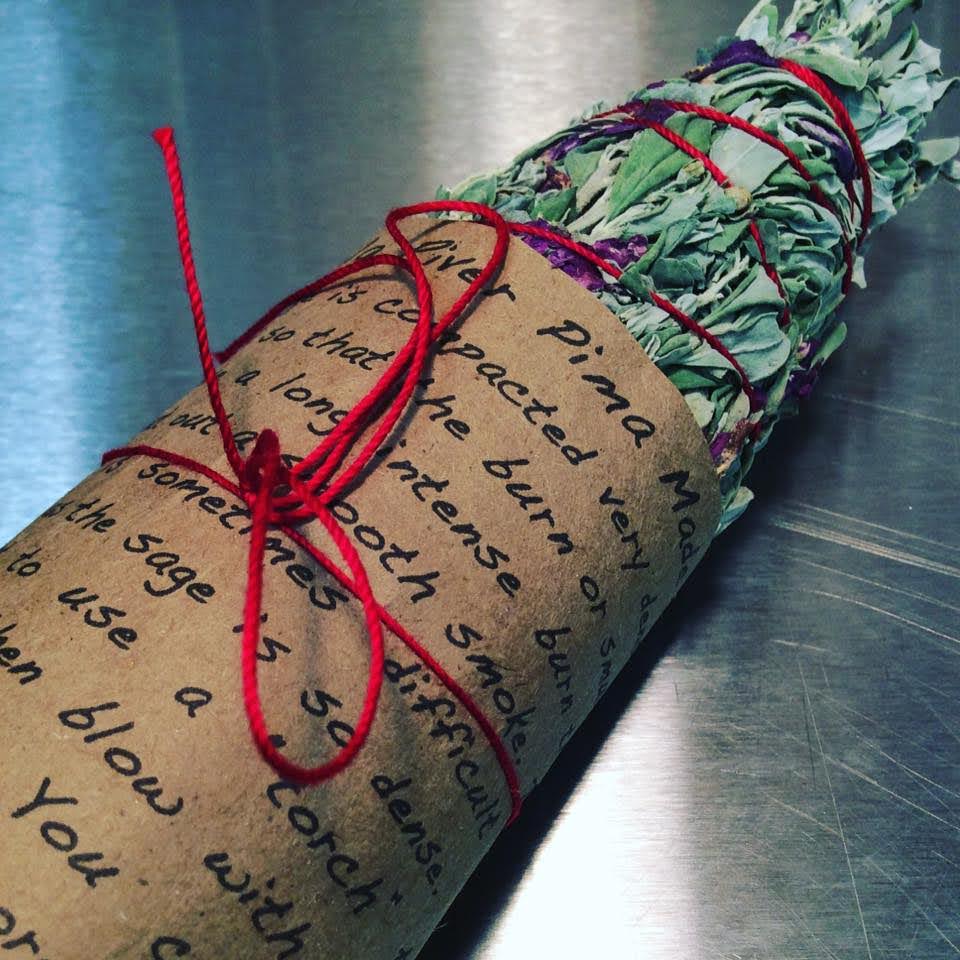 River Pima Made
is compacted very
so that the burn or
a long intense burn
out a smooth smoke.
sometimes difficult
the sage is so dense.
to use a "torch"
blow with
You